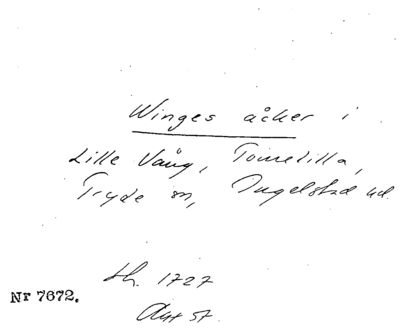 Winges åker i
Lille Vång, Tomelilla,
Tryde sn, Ingelstad hd.
th. 1727
Nr 7672.
Avt 57.